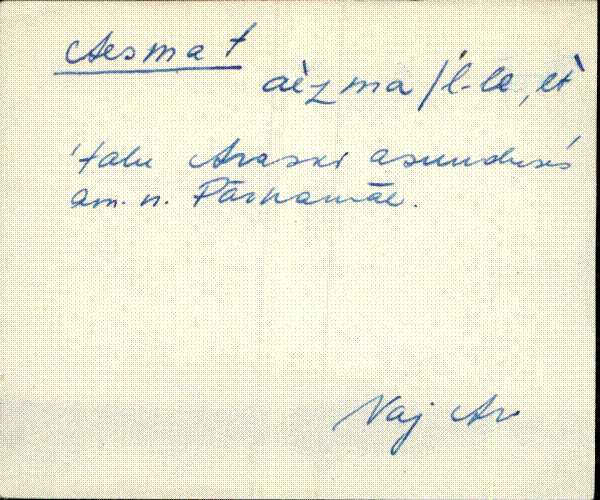 Aesma t
aèzma/l-le, et̀
'talu Araski asunduses
am. n. Pärnamäe.
Vaj Ar